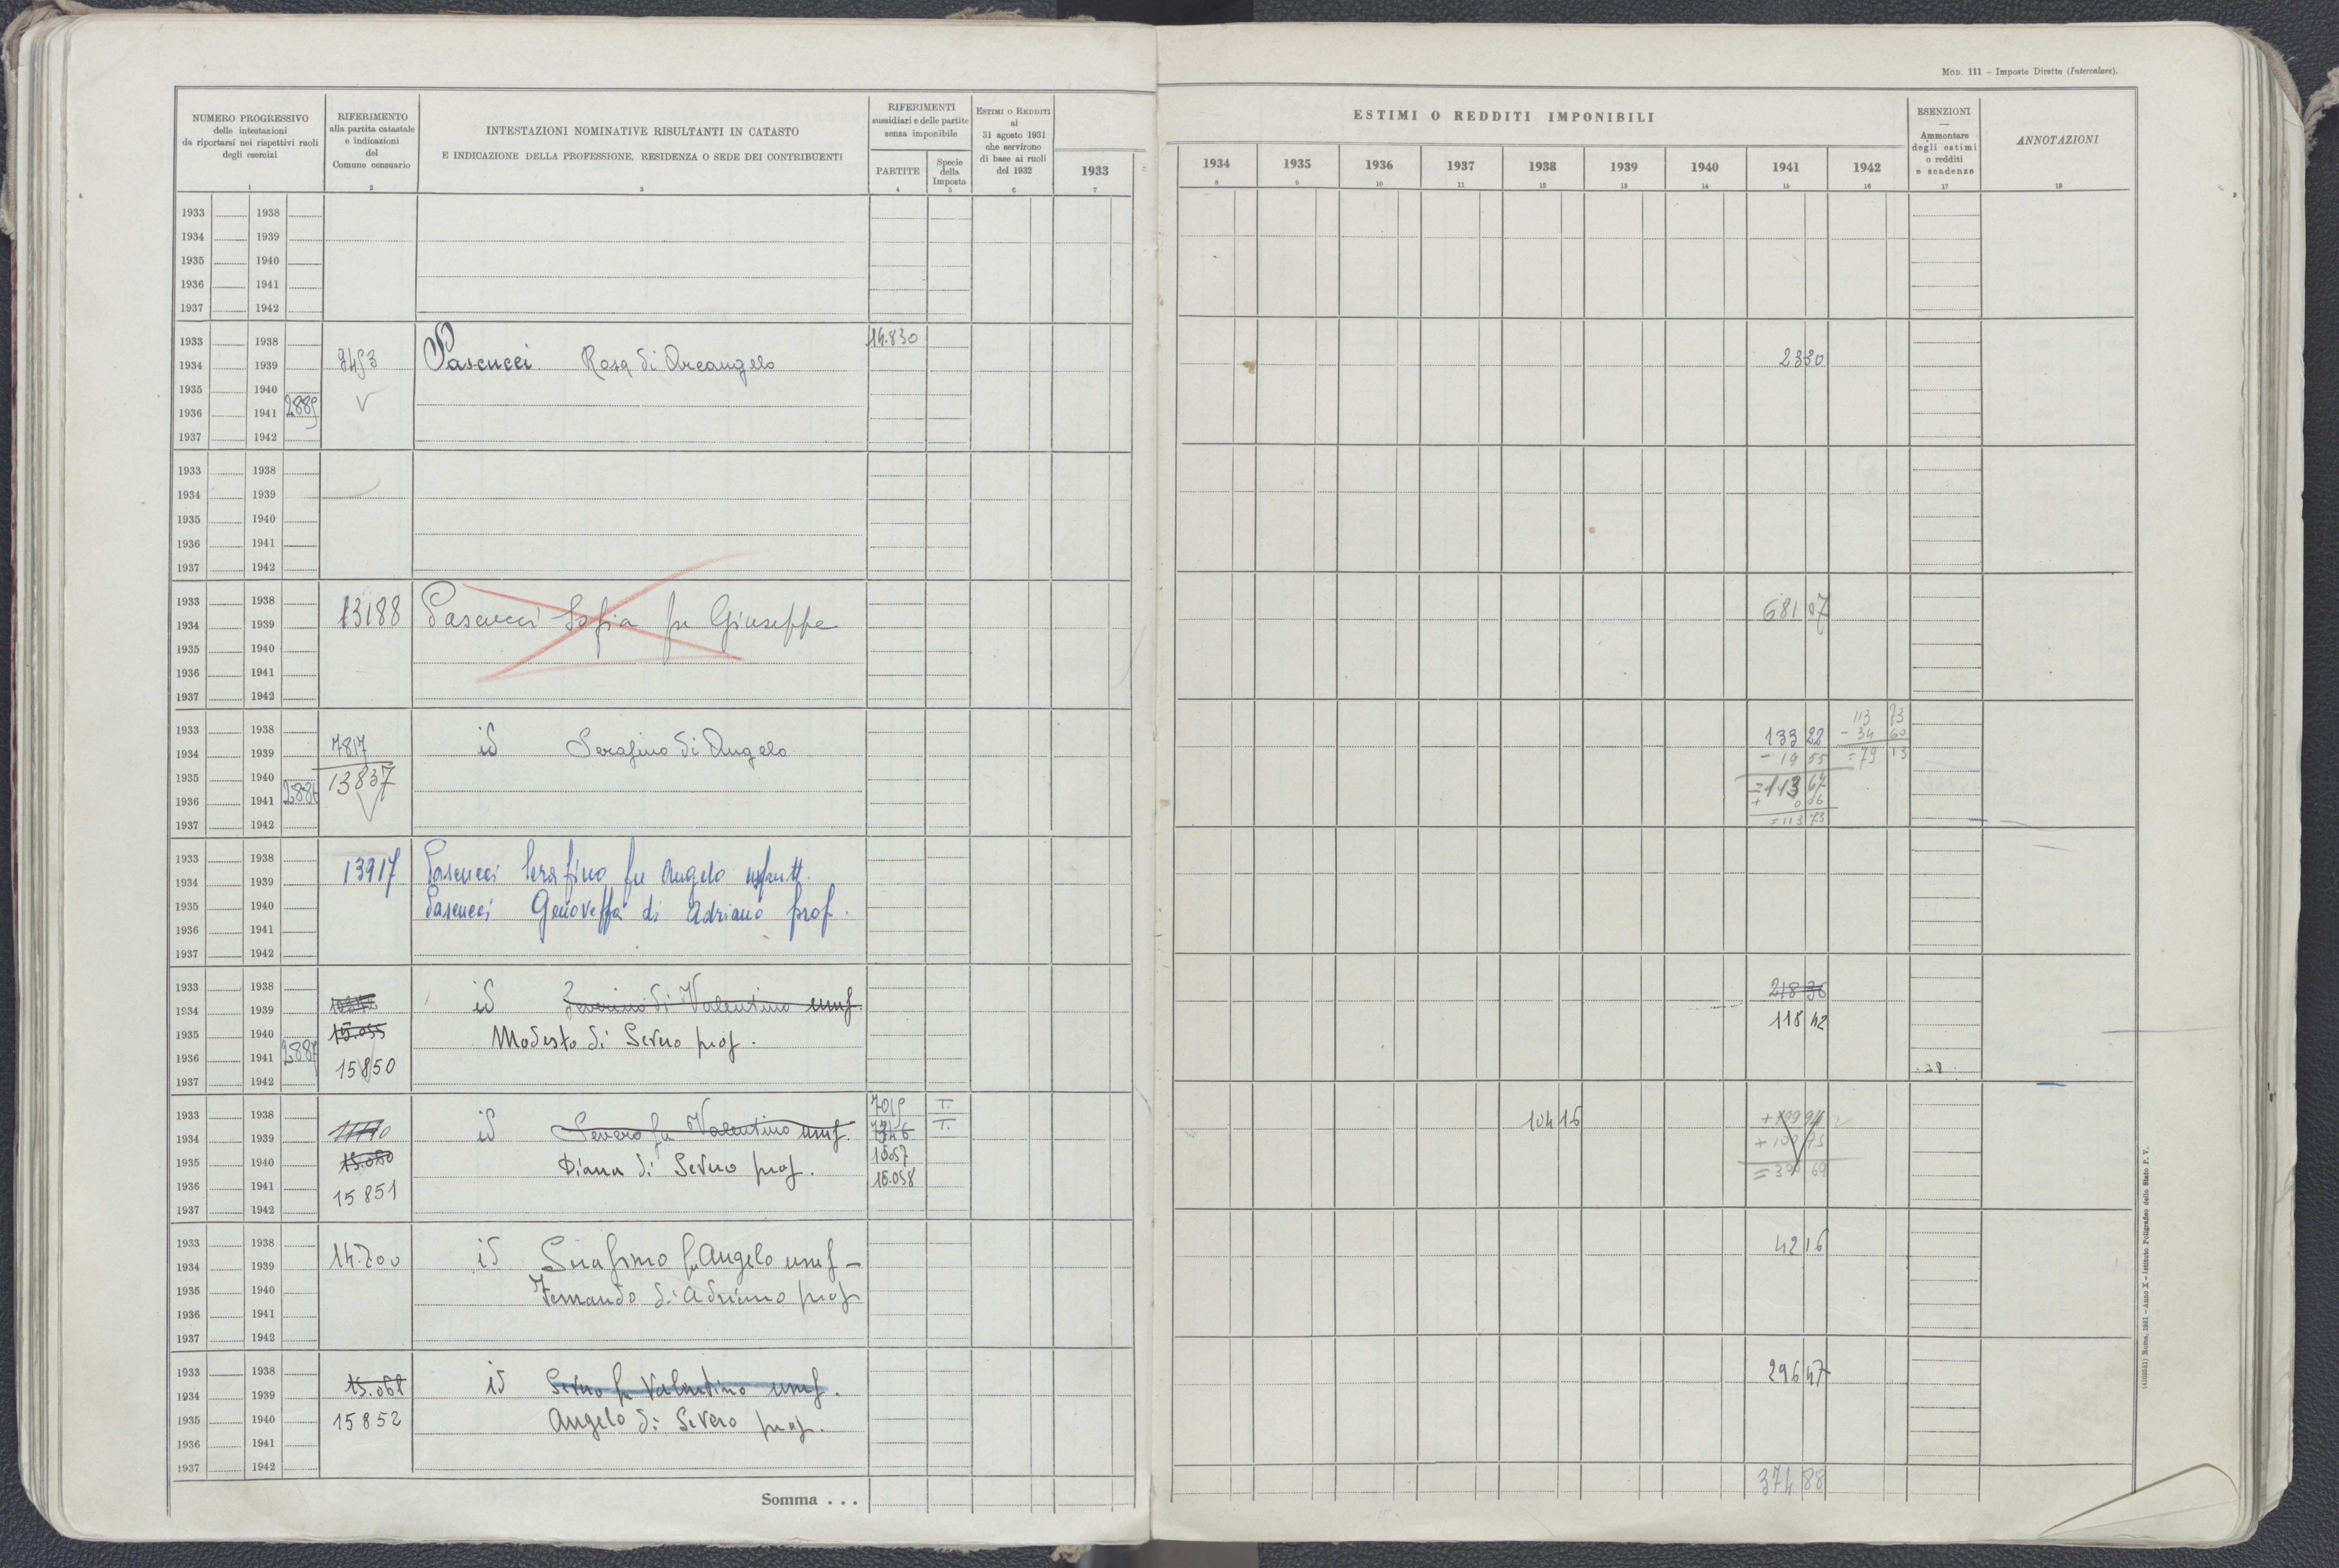 MOD. 111 - Imposte Dirette (Intercalare).
NUMERO PROGRESSIVO
delle intestazioni
da riportarsi nei rispettivi ruoli
degli esercizi
1
RIFERIMENTO
alla partita catastale
e indicazioni
del
Comune censuario
2
INTESTAZIONI NOMINATIVE RISULTANTI IN CATASTO
E INDICAZIONE DELLA PROFESSIONE, RESIDENZA O SEDE DEI CONTRIBUENTI
3
RIFERIMENTI
sussidiari e delle partite
senza imponibile
PARTITE
4
Specie
della
Imposta
5
ESTIMI O REDDITI
al
31 agosto 1931
che servirono
di base ai ruoli
del 1932
6
1933
7
ESTIMI O REDDITI IMPONIBILI
1934 1935 1936 1937 1938 1939 1940 1941 1942
8 9 10 11 12 13 14 15 16
ESENZIONI
Ammontare
degli estimi
o redditi
e scadenze
17
ANNOTAZIONI
18
1933 1938
1934 1939
1935 1940
1936 1941
1937 1942
1933 1938 14.830
1934 1939 Pascucci Rosa di Arcangelo 2330
1935 1940
1936 1941 2885 V
1937 1942
1933 1938
1934 1939
1935 1940
1936 1941
1937 1942
1933 1938 13188 Pascucci Sofia fu Giuseppe 681 07
1934 1939
1935 1940
1936 1941
1937 1942
1933 1938 113 73
1934 1939 7817 id Serafino di Angelo 133 22 - 34 60
- 19 55 = 79 13
1935 1940 13837
1936 1941 2886 = 113 67
+ 0 06
1937 1942 = 113 73
1933 1938 13917 Pascucci Serafino fu Angelo usufrutt.
1934 1939
1935 1940 Pascucci Genoveffa di Adriano prof.
1936 1941
1937 1942
1933 1938 218 36
1934 1939 id Severino di Valentino usuf.
1935 1940 15.055 Modesto di Severo prof. 118 42
1936 1941 2887 15850
1937 1942
1933 1938 7015 T.
1934 1939 id Severo fu Valentino usuf. 7346 T. 104 16
1935 1940 15.060 Diana di Severo prof. 15057
1936 1941 15851 15.058 = 390 69
1937 1942
1933 1938 14.200 id Serafino fu Angelo usuf - 42 16
1934 1939
1935 1940 Fernando di Adriano prof
1936 1941
1937 1942
1933 1938 15.061 id Severo fu Valentino usuf. 296 47
1934 1939
1935 1940 15852 Angelo di Severo prof.
1936 1941
1937 1942
Somma . . . 374 88
(4103551) Roma, 1931 - Anno X - Istituto Poligrafico dello Stato P. V.